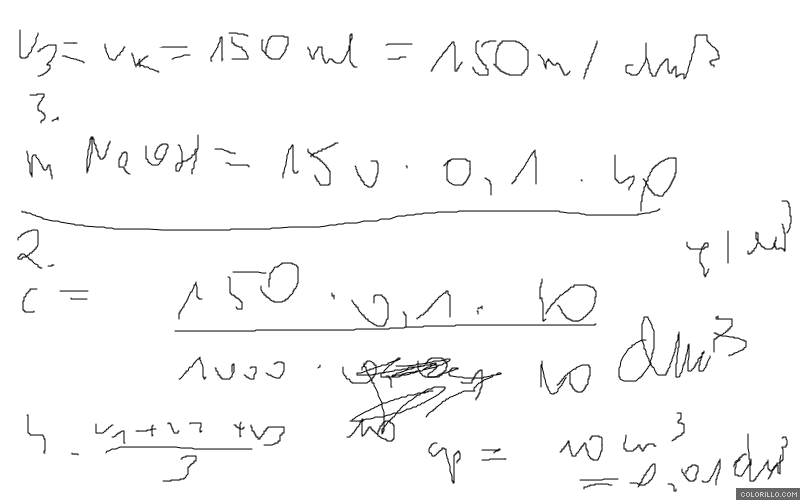 V3 = VK = 150 ml = 150 m / dm³
3.
m NaOH = 150 · 0,1 · 40
2.
g / dm³
c =
150 · 0,1 · 40
1000 · 10 dm³
4. V1 + V2 + V3
3
qp = 10 cm³
= 0,01 dm³
COLORILLO.COM